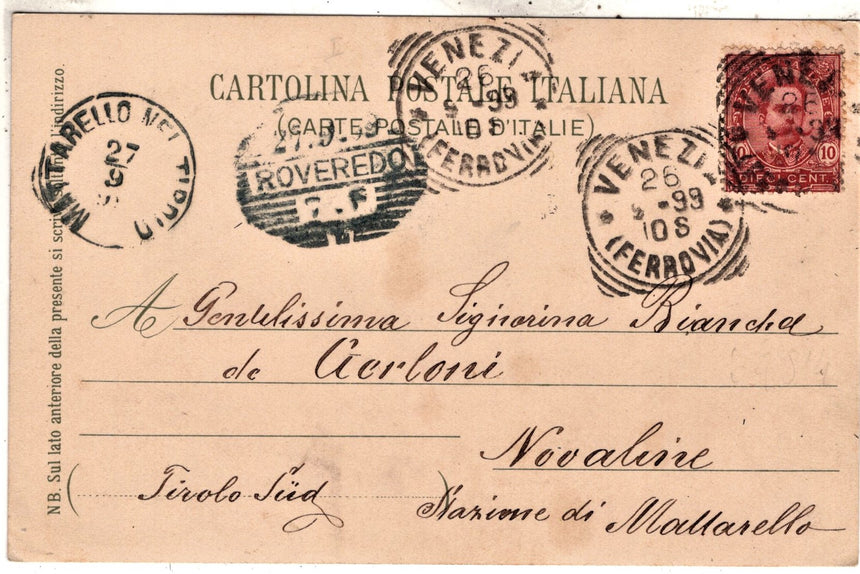 CARTOLINA POSTALE ITALIANA
(CARTE POSTALE D'ITALIE)
VENEZIA
26
9 .99
10 S
(FERROVIA)
VENEZIA
26
9 .99
10 S
(FERROVIA)
VENEZ
26
10 10
DIECI CENT.
27.9.99
ROVEREDO
7.F
1
MATTARELLO NEL TIROLO
27
9
A Gentilissima Signorina Bianca
de
Novaline
(Tirolo Süd)
Stazione di Mattarello
NB. Sul lato anteriore della presente si scrive l'indirizzo.